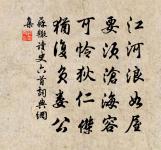 江河浪如屋
要須滄海容
可憐狄仁傑
猶復負婁公
蘇轍讀史六首詞典網
集